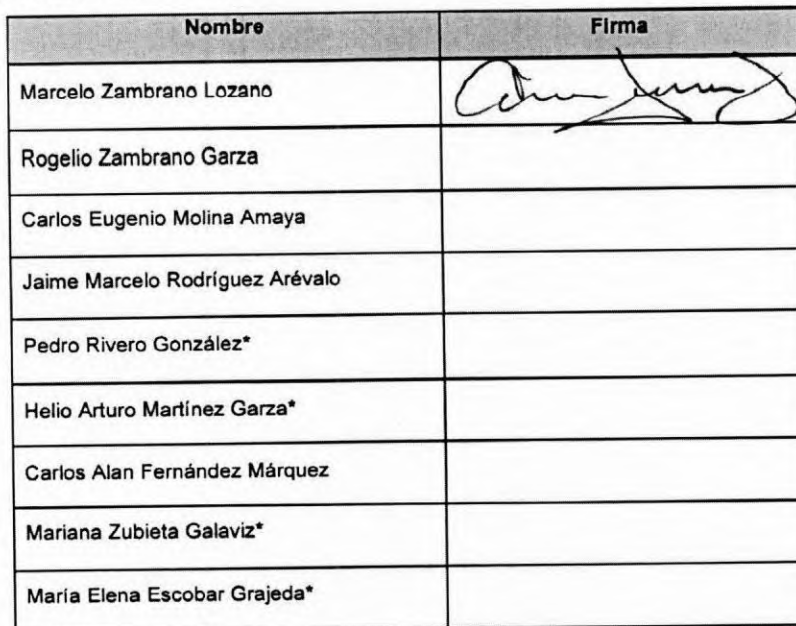 Nombre Firma
Marcelo Zambrano Lozano
Rogelio Zambrano Garza
Carlos Eugenio Molina Amaya
Jaime Marcelo Rodríguez Arévalo
Pedro Rivero González*
Helio Arturo Martínez Garza*
Carlos Alan Fernández Márquez
Mariana Zubieta Galaviz*
María Elena Escobar Grajeda*